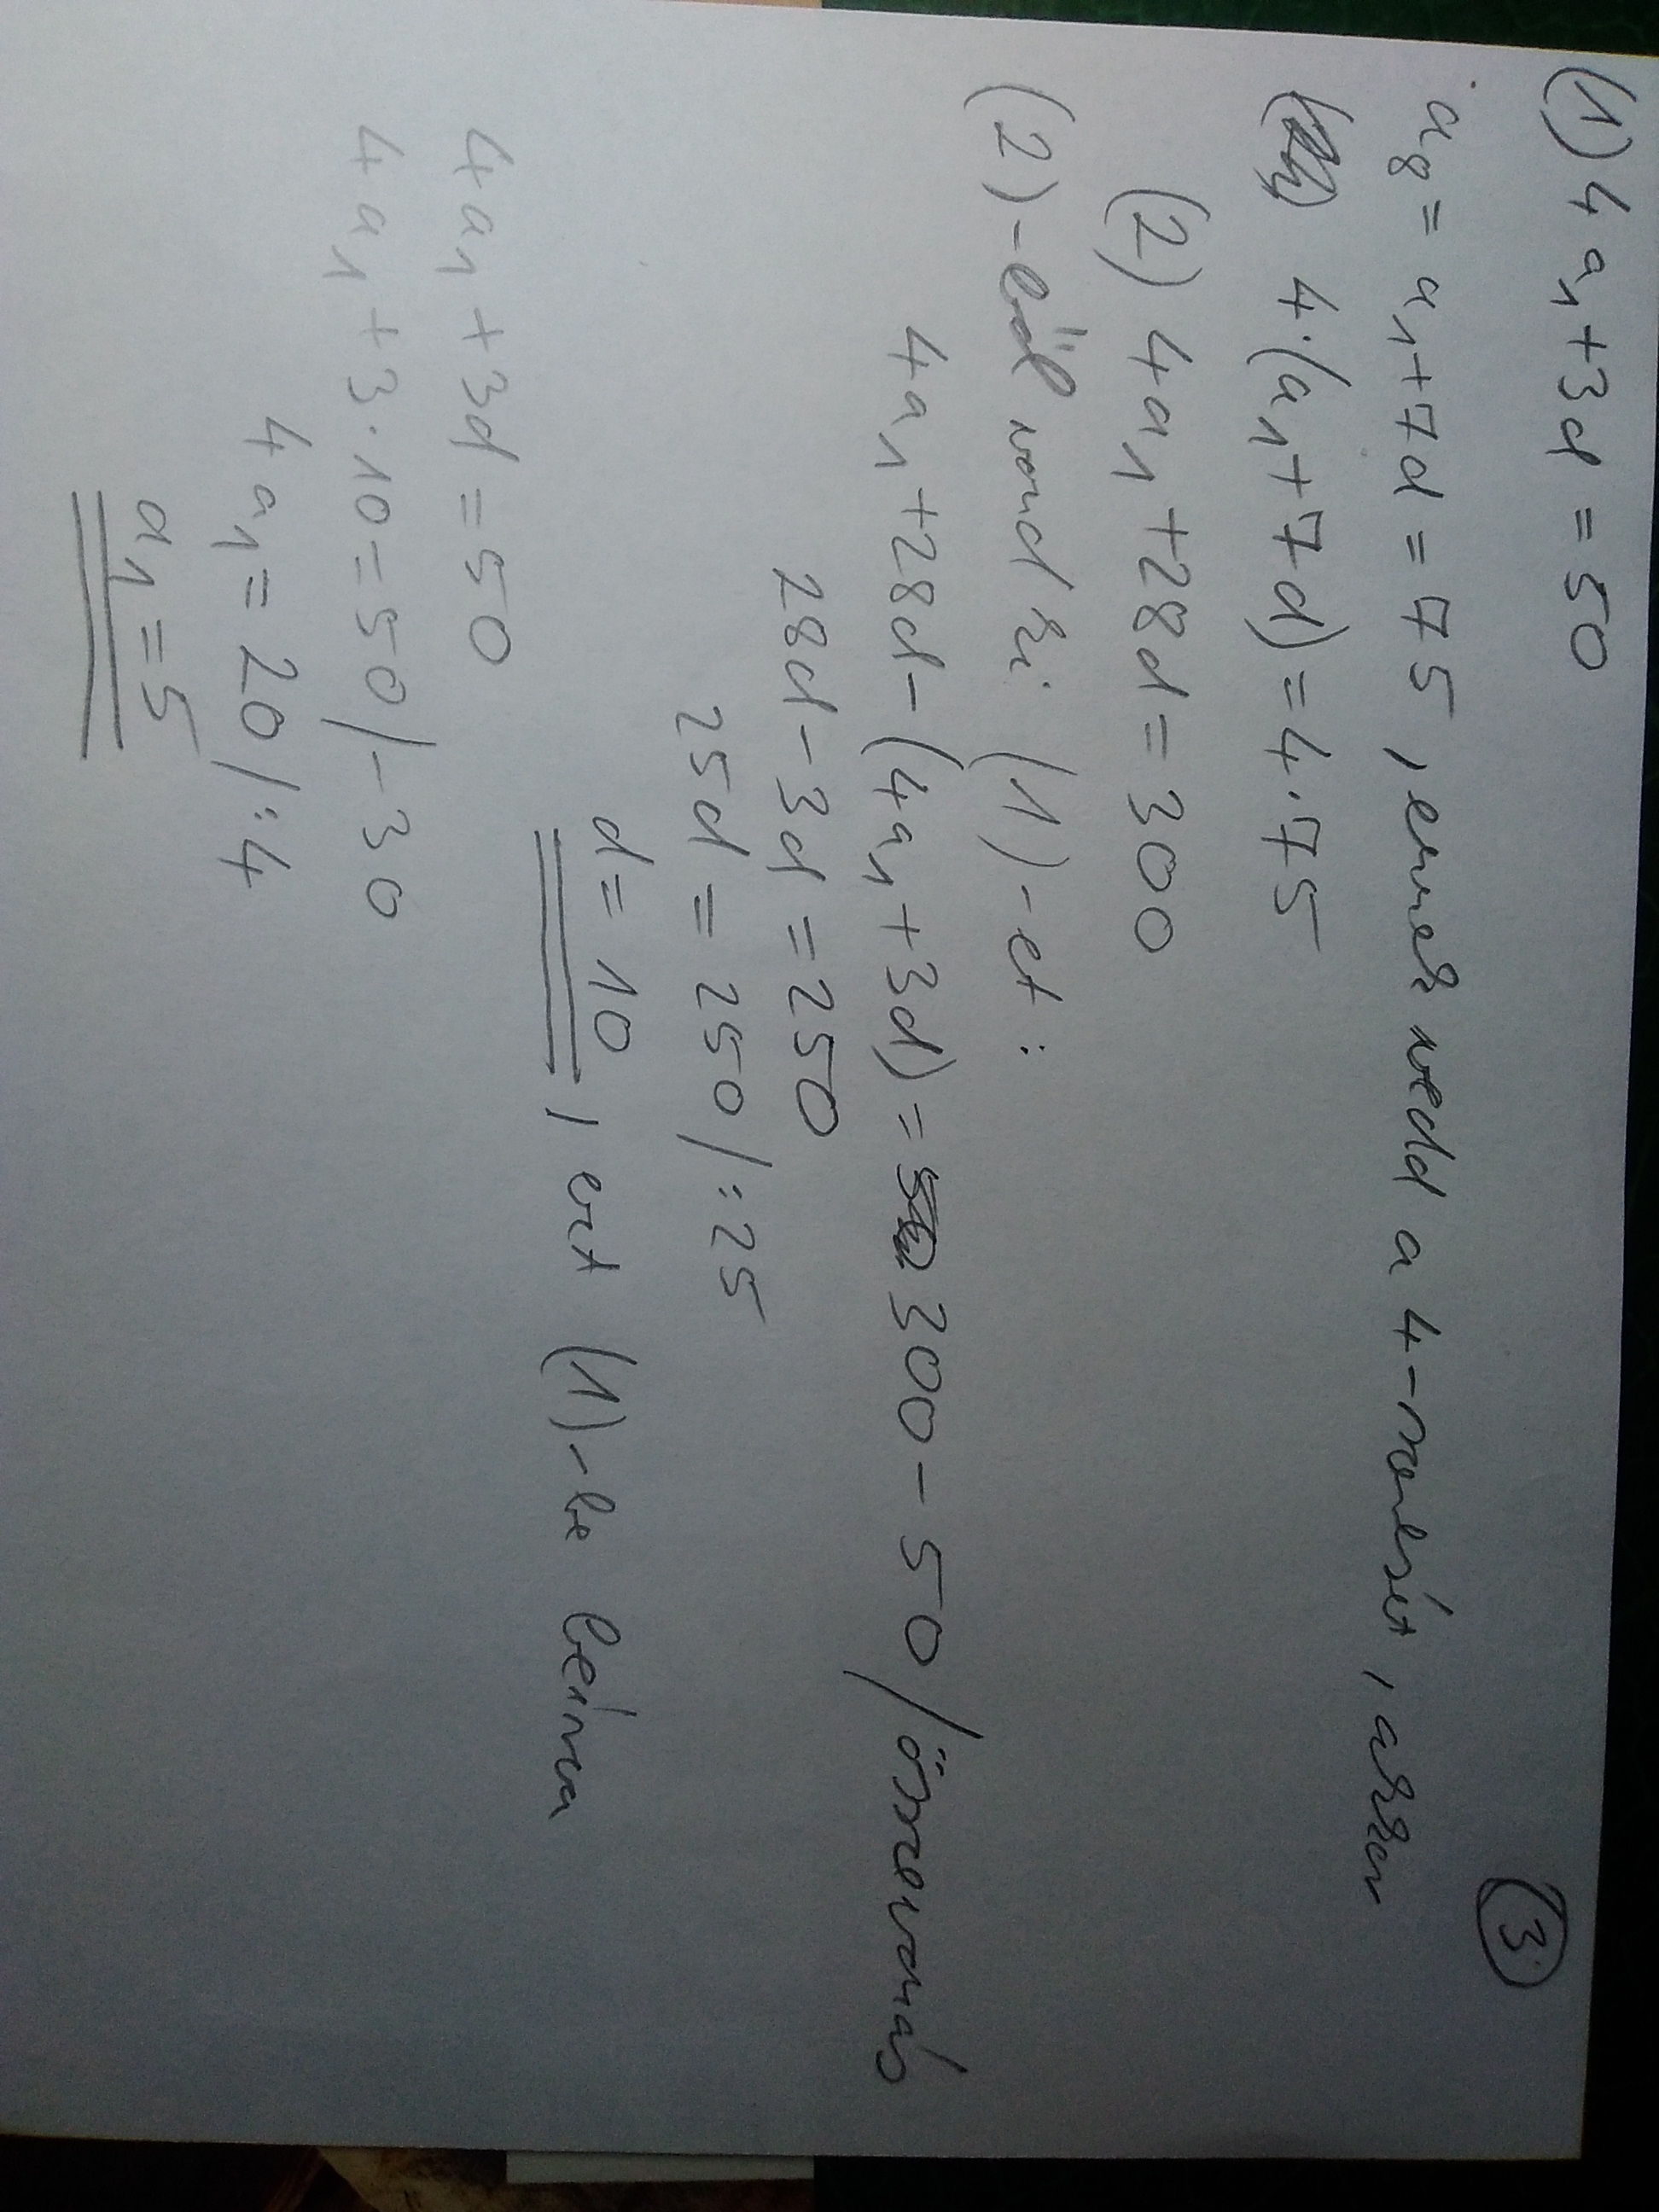 ③
(1) 4a₁+3d=50
a₈=a₁+7d=75, ennek vedd a 4-szeresét, akkor
4·(a₁+7d)=4·75
(2) 4a₁+28d=300
(2)-ből vond ki (1)-et:
4a₁+28d-(4a₁+3d)=300-50/összevonás
28d-3d=250
25d=250/:25
d=10, ezt (1)-be beírva
4a₁+3d=50
4a₁+3·10=50/-30
4a₁=20/:4
a₁=5